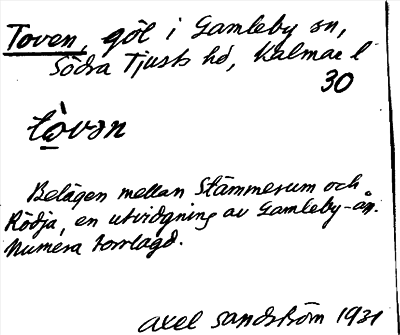 Toven, göl i Gamleby sn,
Södra Tjusts hd, Kalmar l
30
tò̱vən
Belägen mellan Stämmesum och
Rödja, en utvidgning av Gamleby-ån.
Numera torrlagd.
Axel Sandström 1931